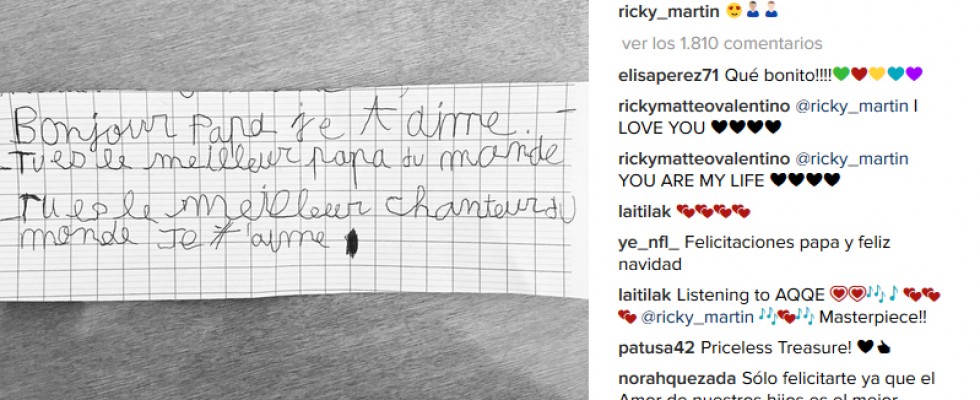 Bonjour papa je t'aime.
Tu es le meilleur papa du monde
Tu es le meilleur chanteur du
monde Je t'aime
ricky_martin 😍👨‍👦‍👦
ver los 1.810 comentarios
elisaperez71 Qué bonito!!!!💚❤💛💙💜
rickymatteovalentino @ricky_martin I
LOVE YOU ♥♥♥♥
rickymatteovalentino @ricky_martin
YOU ARE MY LIFE ♥♥♥♥
laitilak 💕💕💕💕
ye_nfl_ Felicitaciones papa y feliz
navidad
laitilak Listening to AQQE 💟💟🎶🎵 💕💕
💕 @ricky_martin 🎶💕🎶 Masterpiece!!
patusa42 Priceless Treasure! ♥👍
norahquezada Sólo felicitarte ya que el
Amor de nuestros hijos es el mejor